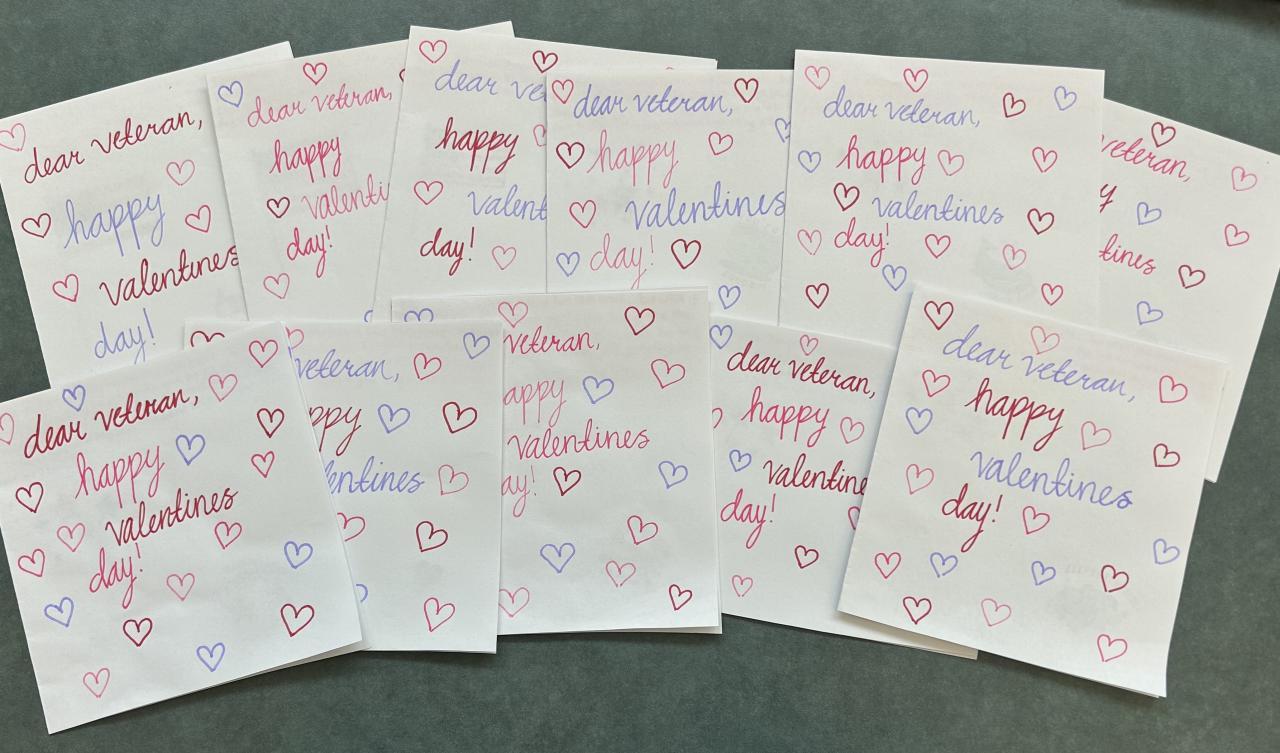 dear veteran,
happy
valentines
day!
dear veteran,
happy
valenti
day!
dear ve
happy
valent
day!
dear veteran,
happy
valentines
day!
dear veteran,
happy
valentines
day!
veteran,
y
tines
dear veteran,
happy
valentines
day!
veteran,
ppy
entines
veteran,
appy
valentines
ay!
dear veteran,
happy
valentine
day!
dear veteran,
happy
valentines
day!